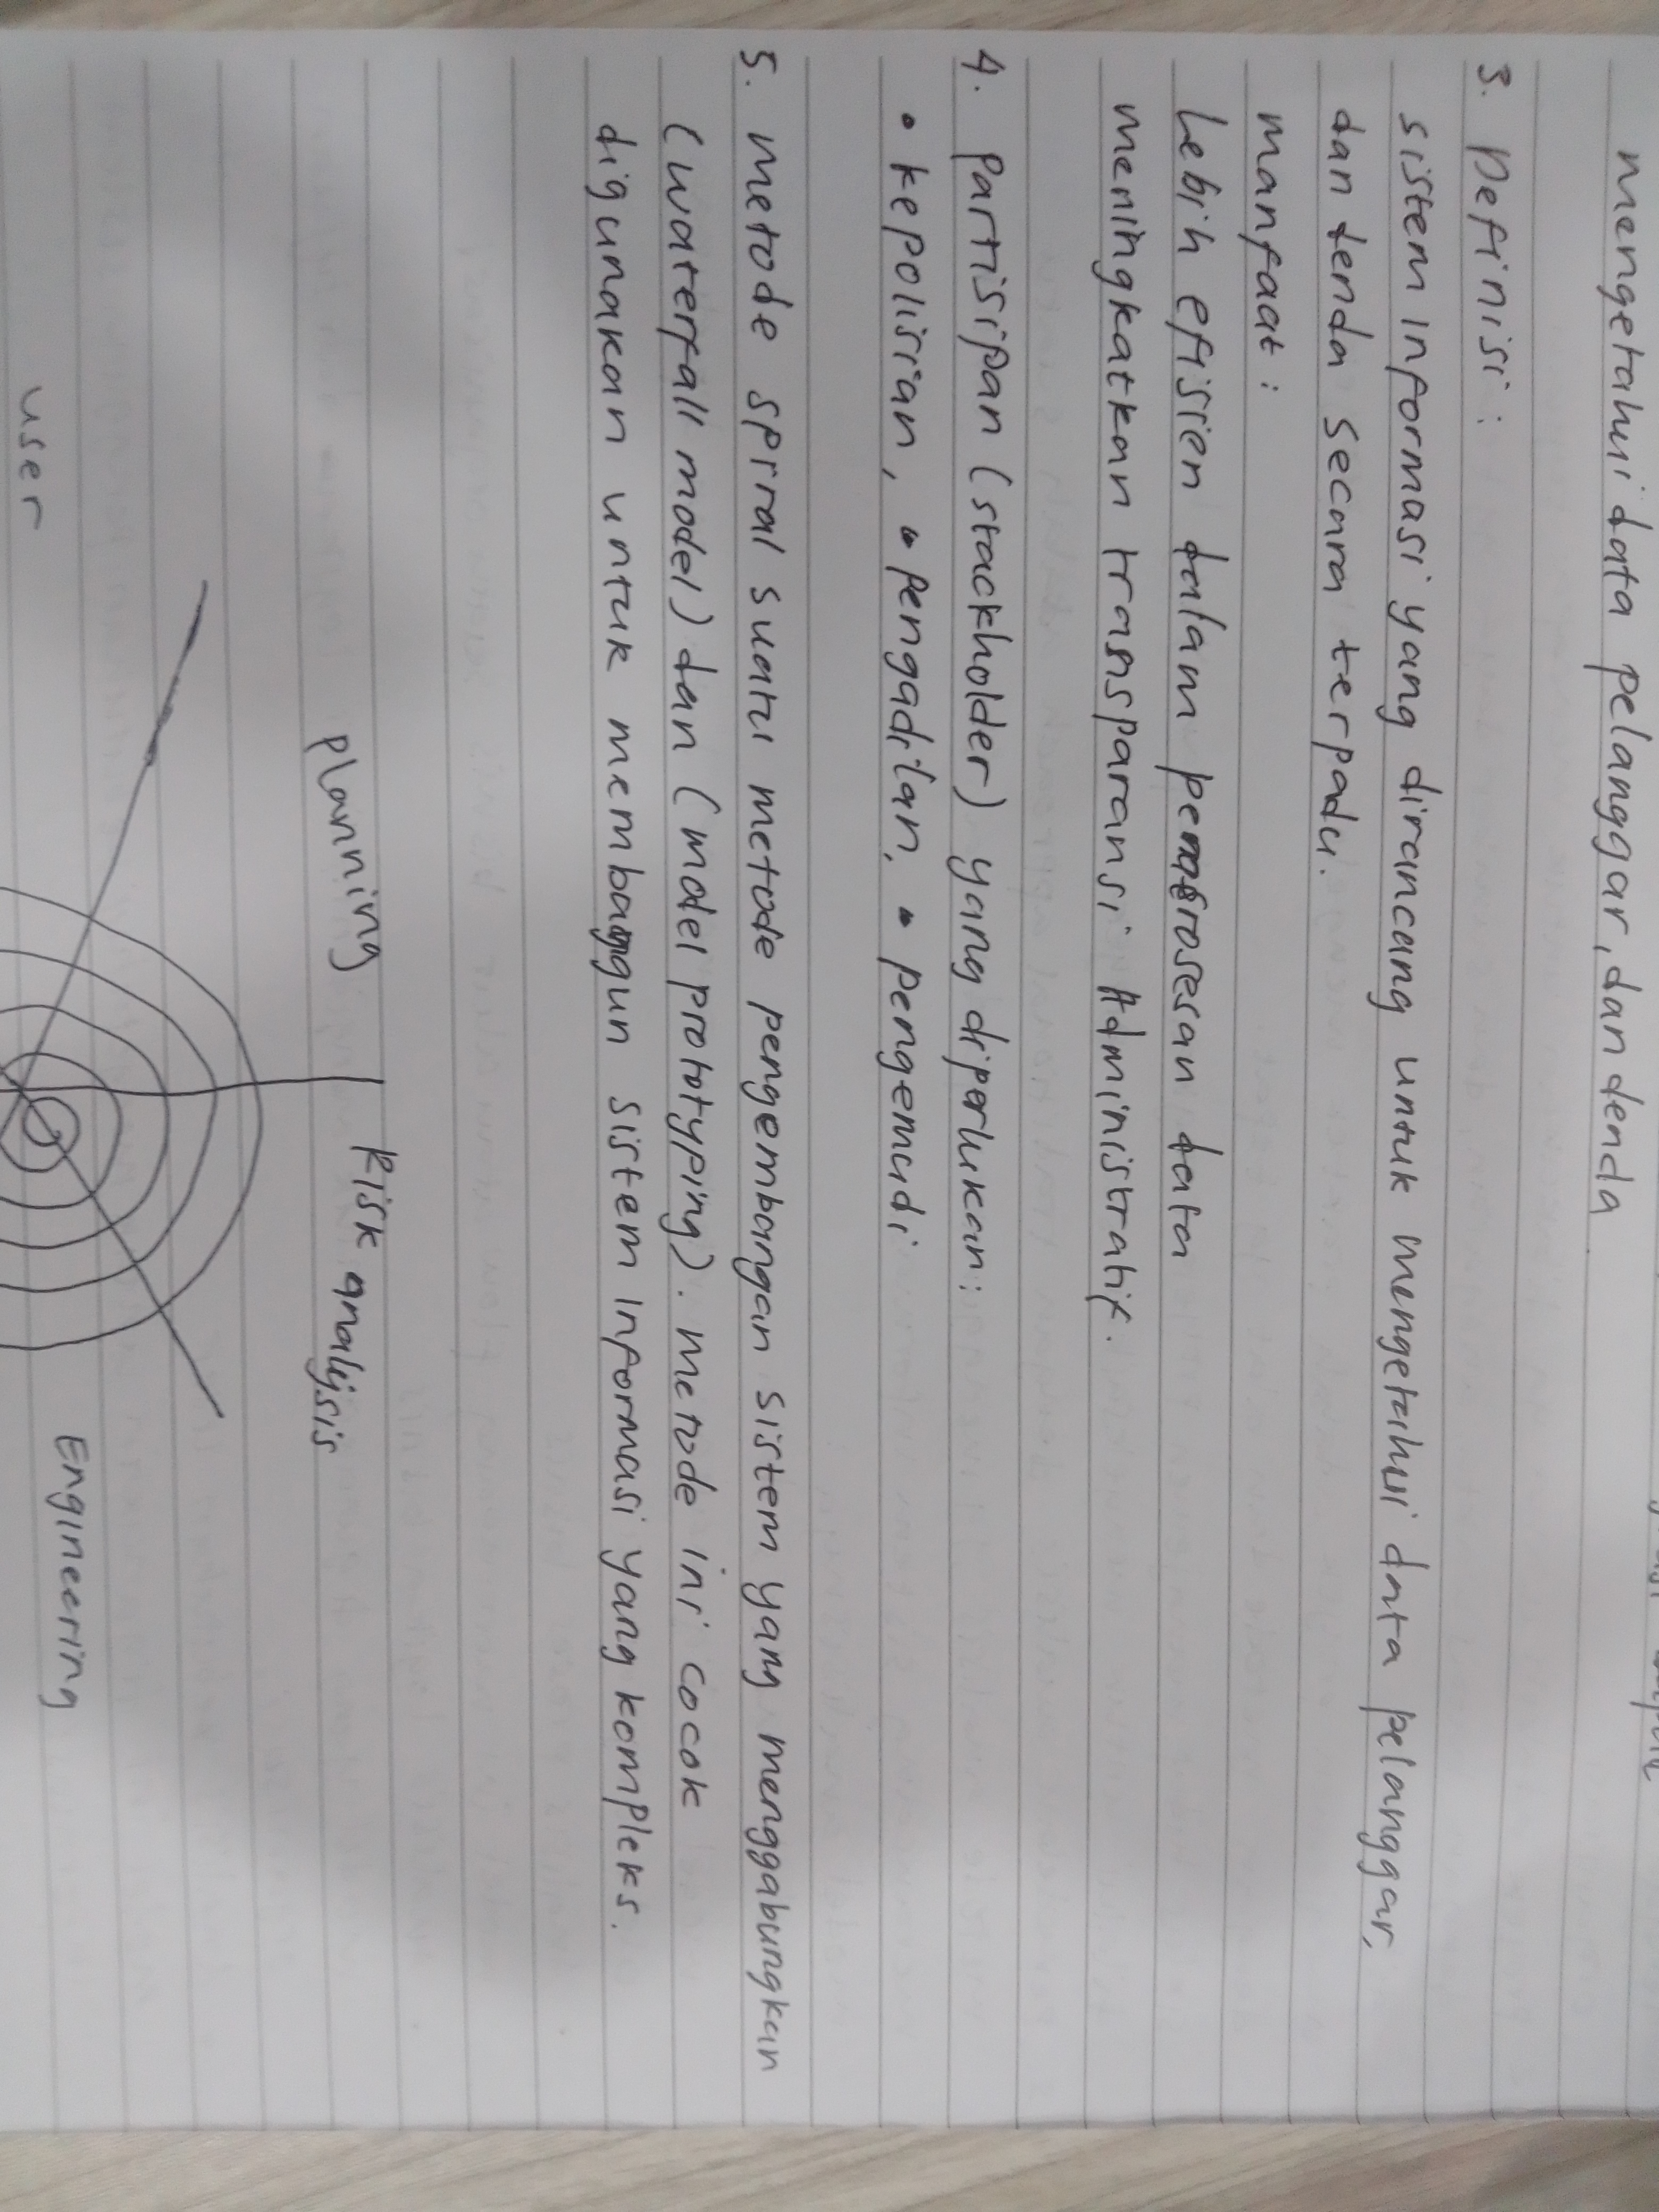 mengetahui data pelanggar, dan denda
3. Definisi :
sistem informasi yang dirancang untuk mengetahui data pelanggar,
dan denda secara terpadu.
manfaat :
Lebih efisien dalam pemrosesan data
meningkatkan transparansi Administratif.
4. Partisipan (stackholder) yang diperlukan :
• kepolisian, • pengadilan, • pengemudi
5. metode spiral suatu metode pengembangan sistem yang menggabungkan
(waterfall model) dan (model prototyping). metode ini cocok
digunakan untuk membangun sistem informasi yang kompleks.
planning
Risk analysis
user
Engineering